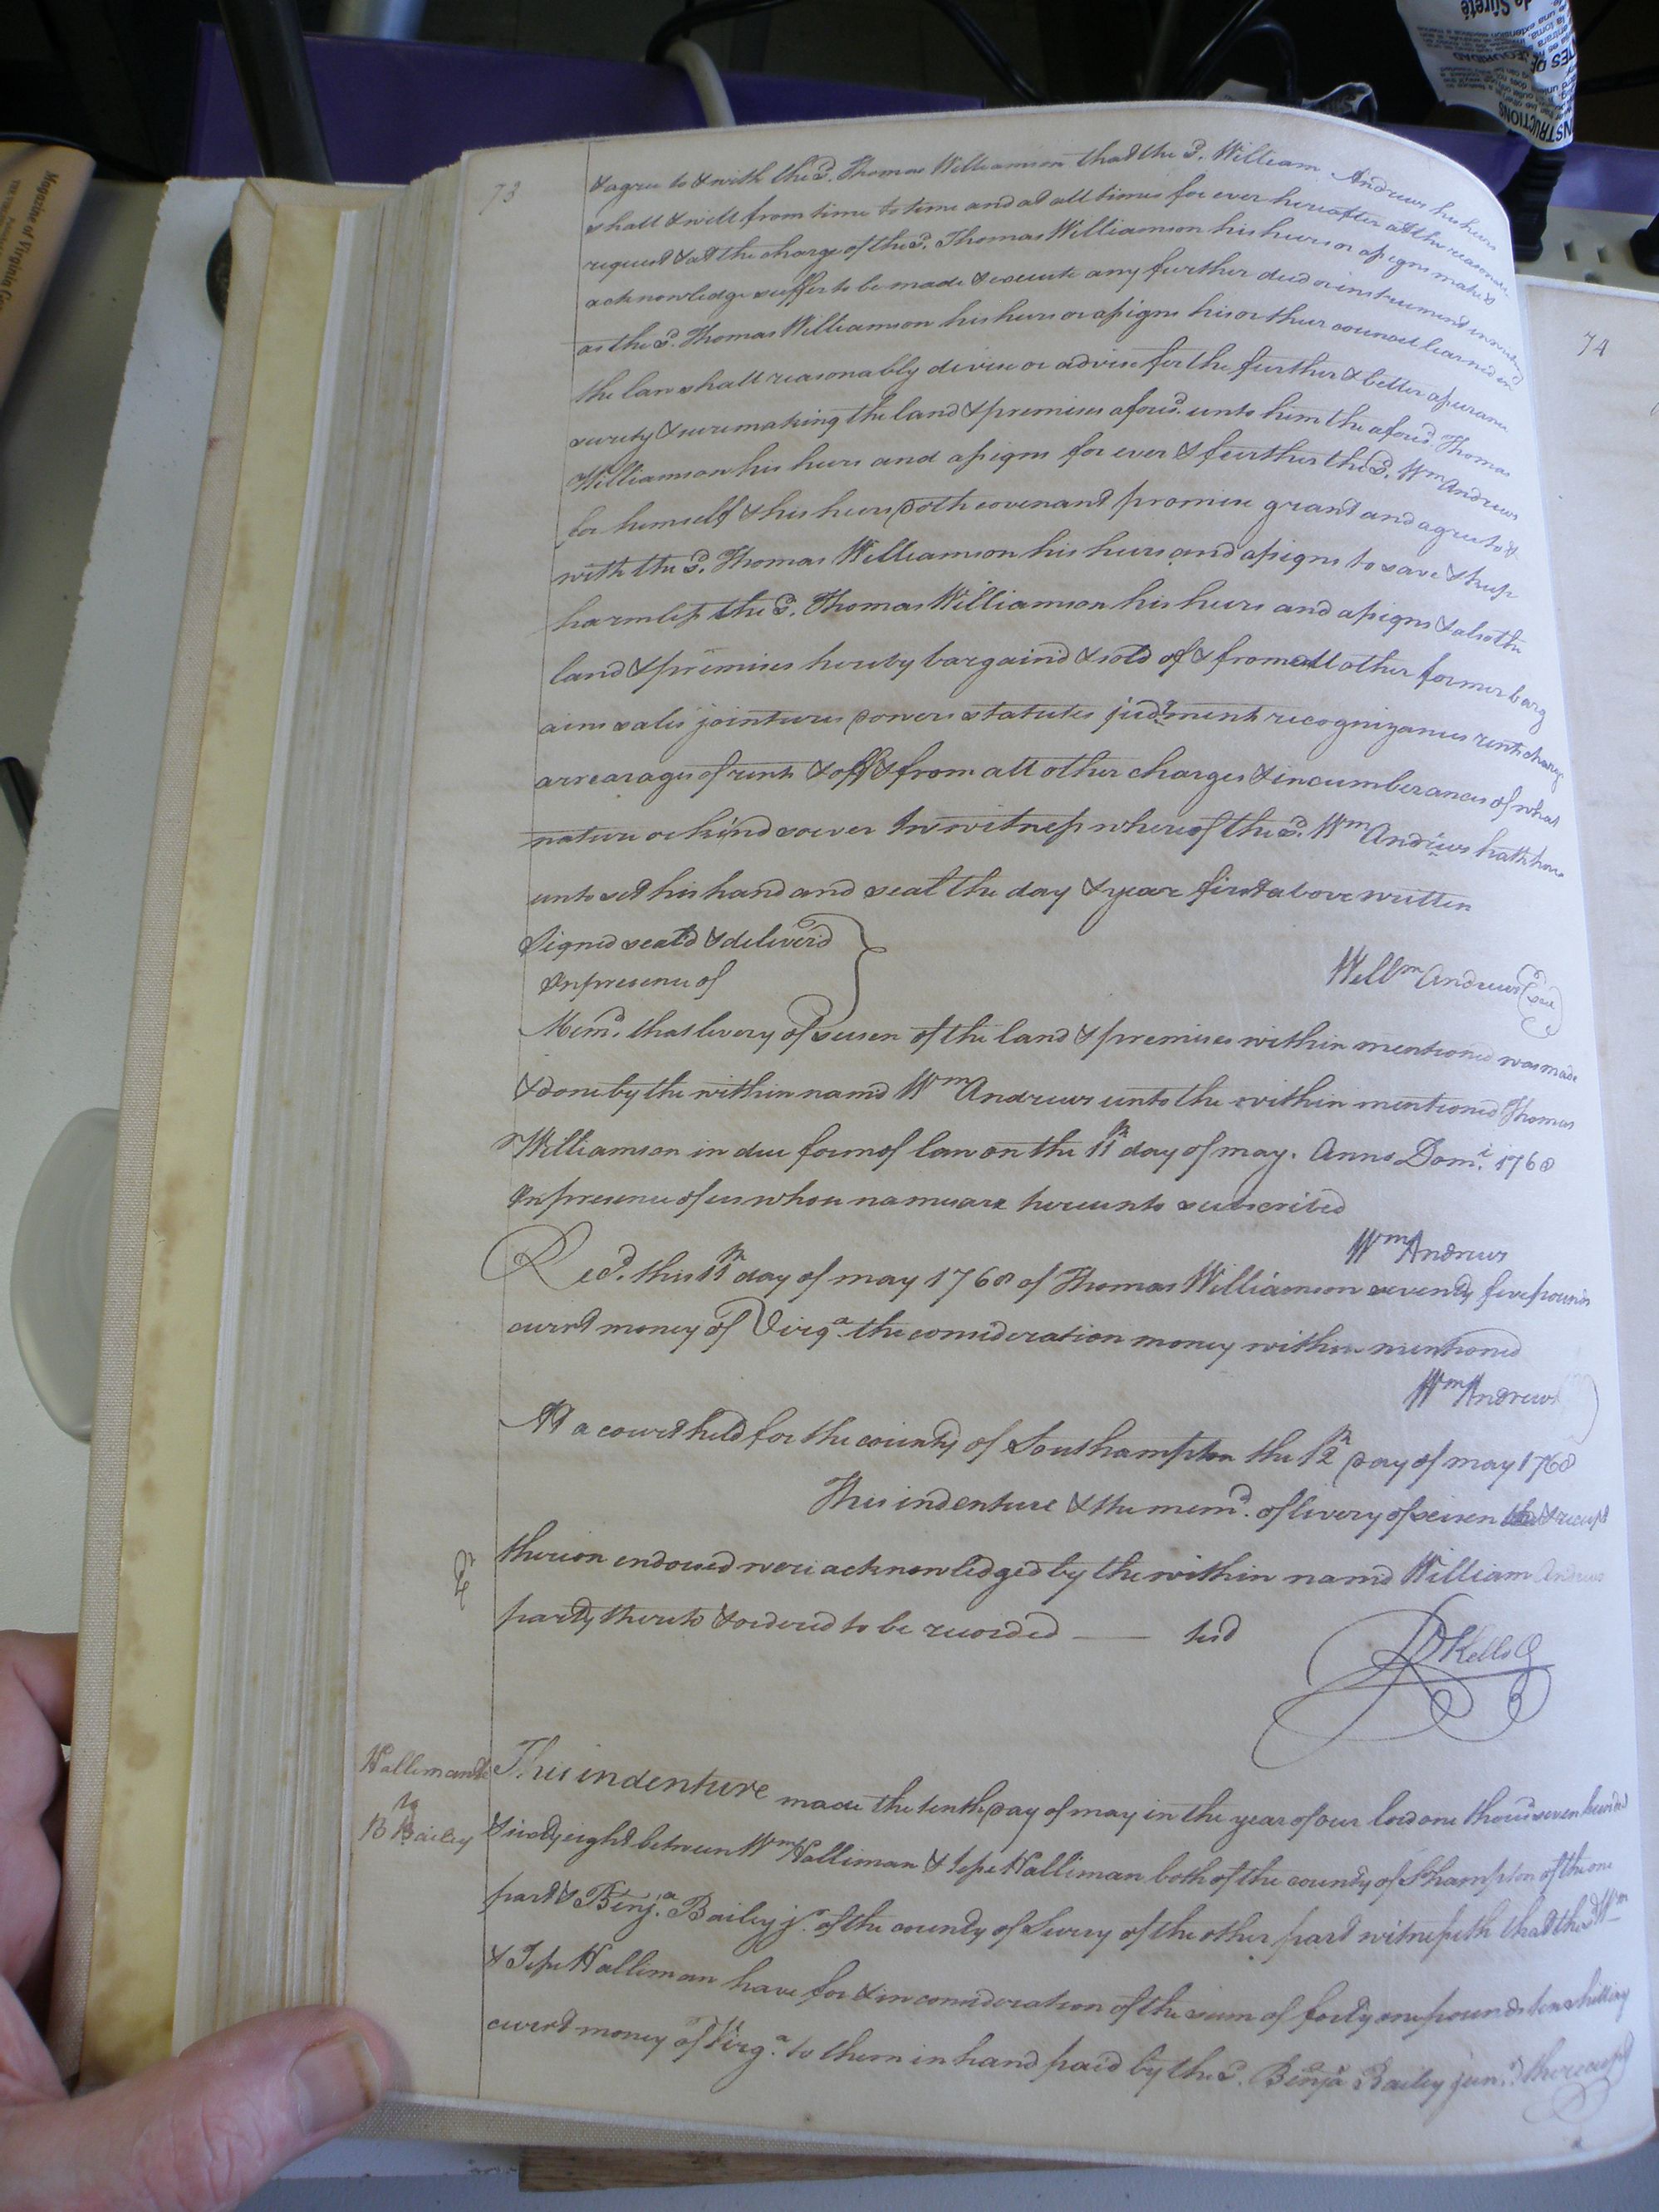 73
& agree to & with the sd. Thomas Williamson that the sd. William Andrews his heirs
shall & will from time to time and at all times for ever hereafter at the reasonable
request & at the charge of the sd. Thomas Williamson his heirs or assigns make do
acknowledge suffer to be made & execute any further deed or instrument in writing
as the sd. Thomas Williamson his heirs or assigns his or their council learned in
the law shall reasonably devise or advise for the further & better assurance
surety & sure making the land & premises aforesd. unto him the aforesd. Thomas
Williamson his heirs and assigns for ever & further the sd. Wm Andrews
for himself & his heirs doth covenant promise grant and agree to &
with the sd. Thomas Williamson his heirs and assigns to save & keep
harmless the sd. Thomas Williamson his heirs and assigns & also the
land & premises hereby bargaind & sold of & from all other former barg
ains sales jointures dowers statutes judgment recognizances rents charge
arrearages of rents & off & from all other charges & incumberances of what
nature or kind soever In witness whereof the sd. Wm Andrews hath here
unto set his hand and seal the day & year first above written
Signed seald & deliverd
In presence of
Willm Andrews Seal
Memd. that livery of seisen of the land & premises within mentioned was made
& done by the within namd Wm Andrews unto the within mentioned Thomas
Williamson in due form of law on the 11th day of may. Anno Domi. 1768
In presence of us whose names are hereunto subscribed
Wm Andrews
Recd. this 11th day of may 1768 of Thomas Williamson seventy five pounds
currt money of Virga. the consideration money within mentioned
Wm Andrews
At a court held for the county of Southampton the 12th day of may 1768
This indenture & the memd. of livery of seisen & receipt
thereon endorsed were acknowledged by the within namd William Andrews
party thereto & ordered to be recorded —— Test
Kello
Hallimands
to
B Bailey
This indenture made the tenth day of may in the year of our lord one thousd seven hundred
& sixty eight between Wm Halliman & Jesse Halliman both of the county of Shampton of the one
part & Benja. Bailey jr. of the county of Surry of the other part witnesseth that the sd Wm
& Jesse Halliman have for & in consideration of the sum of forty one pounds ten shilling
currt money of Virga. to them in hand paid by the sd. Benja Bailey junr.
74
Magazine of Virginia
INSTRUCTIONS
de Sûreté